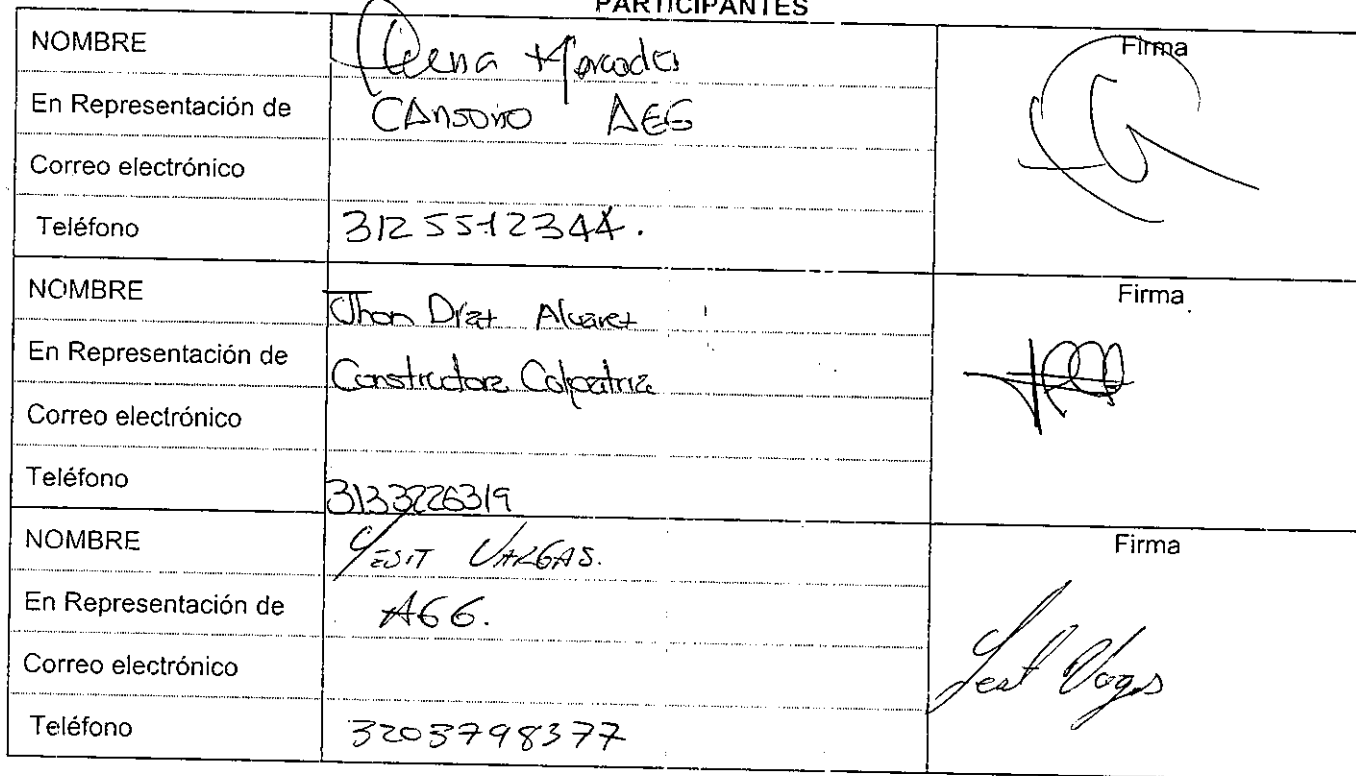 PARTICIPANTES
NOMBRE Elena Mercado Firma
En Representación de CAnsorio AEG
Correo electrónico
Teléfono 3125512344.
NOMBRE Jhon Díaz Alvarez Firma
En Representación de Constructora Colpatria
Correo electrónico
Teléfono 3133226319
NOMBRE YESIT VARGAS. Firma
En Representación de AGG.
Correo electrónico
Teléfono 3203798377